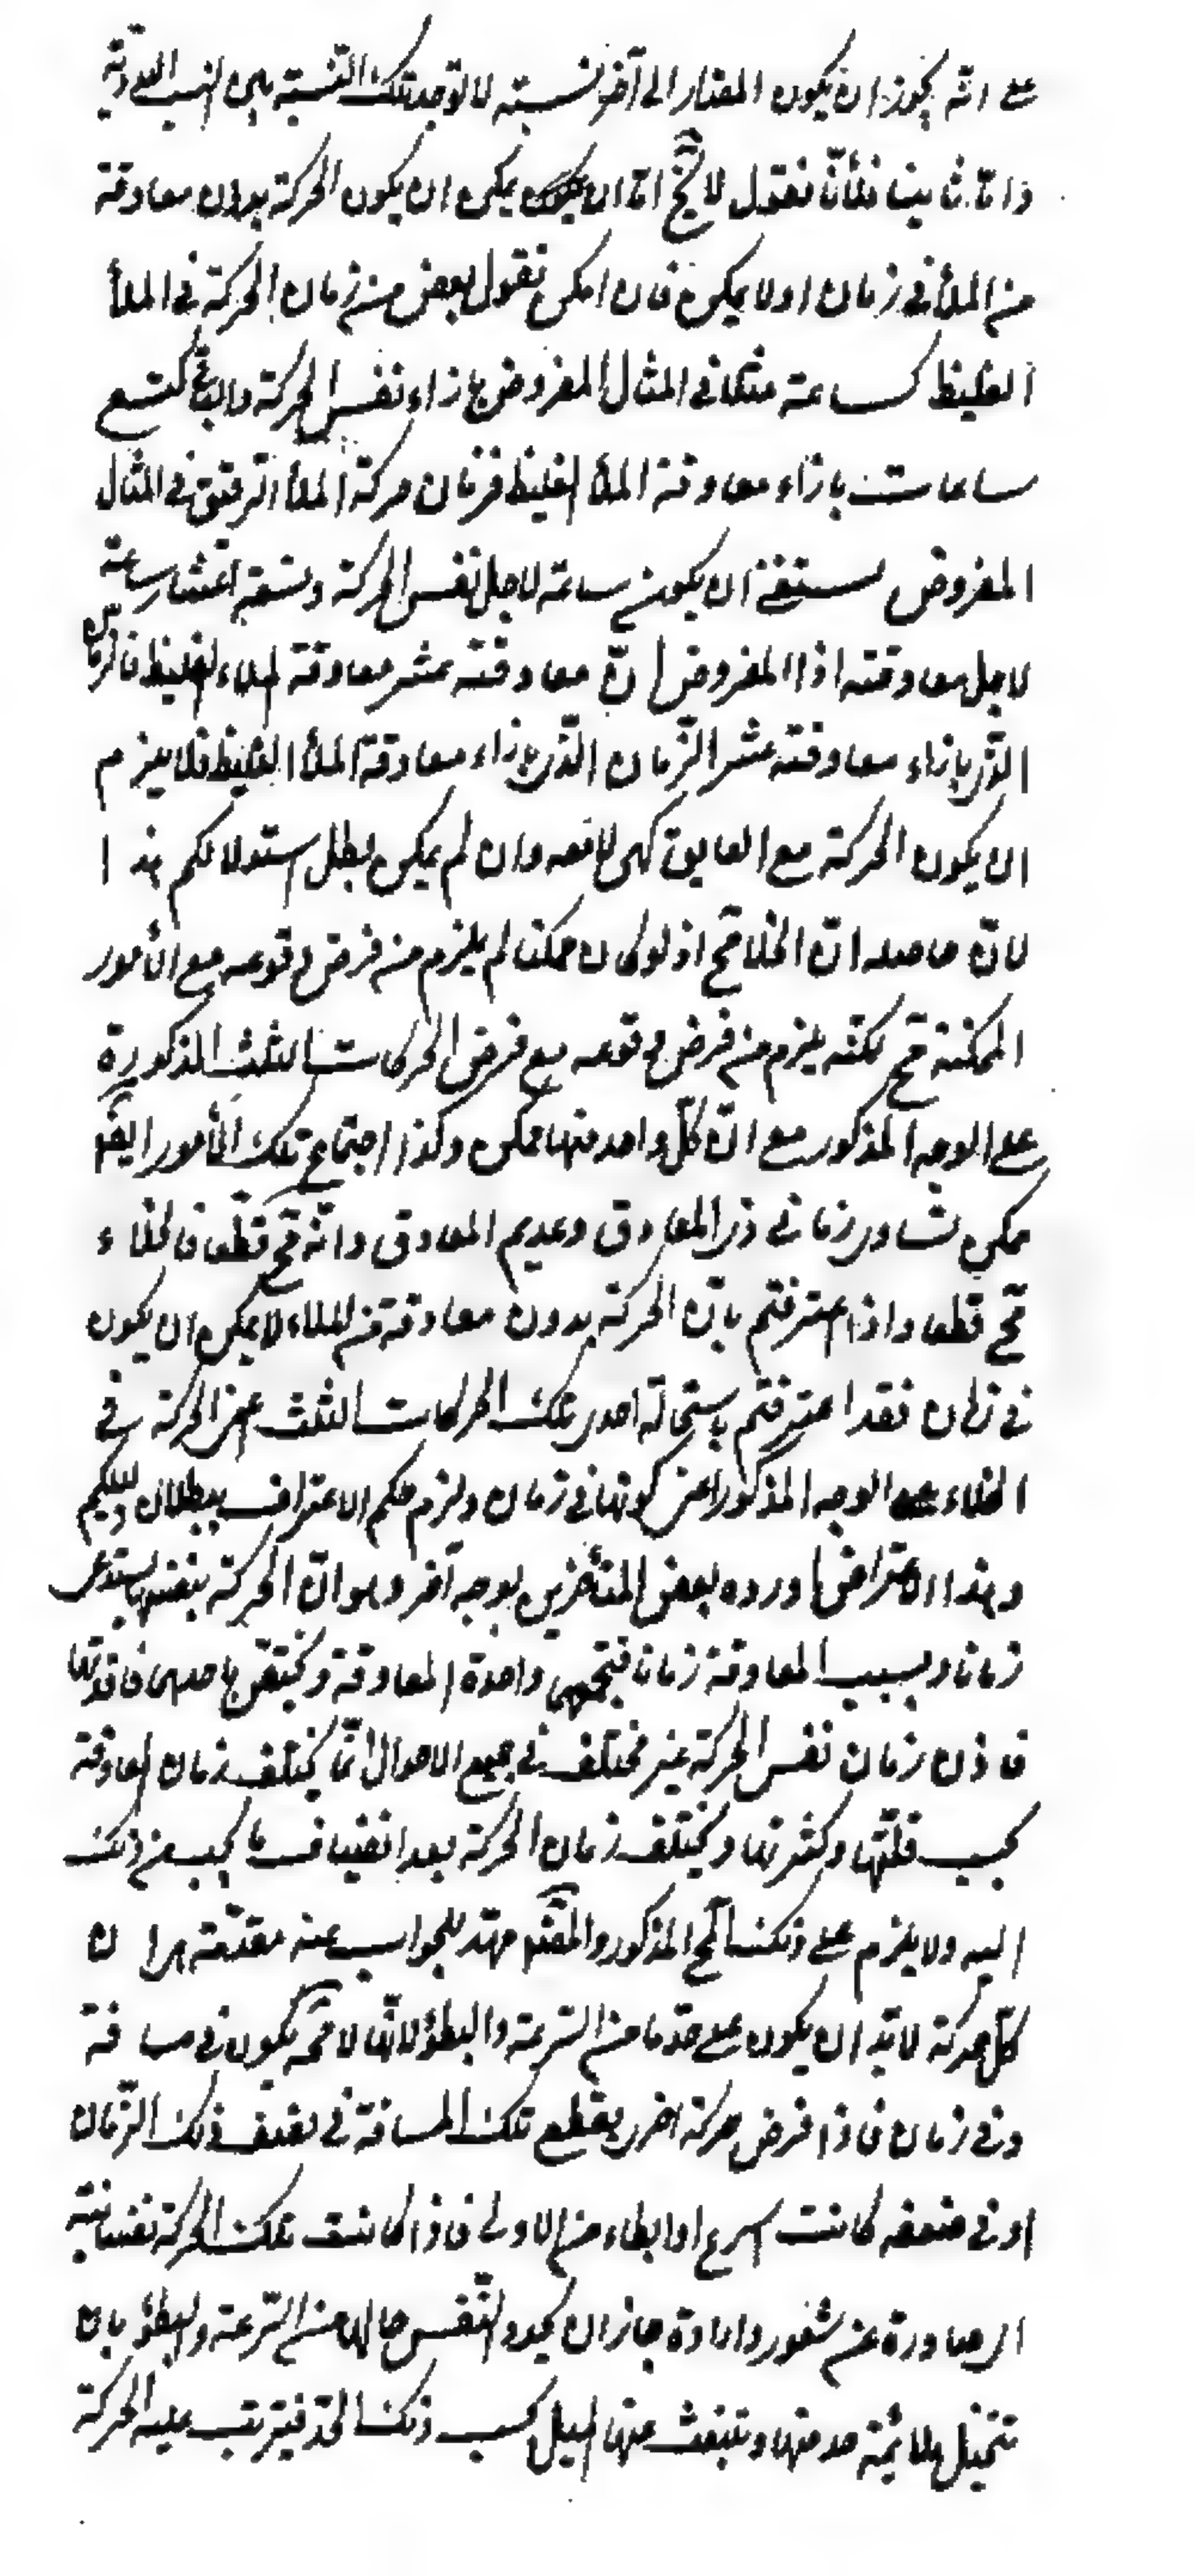 على انه يجوز ان يكون لمقدار الى آخر نسبته لا توجد تلك النسبة بين النسب العددية
واما ثانيا فلأنّا نقول لا يخ اما ان يمكن ان يكون الحركة بدون معاوقة
من الملأ فى زمان او لا يمكن فان امكن نقول بعض من زمان الحركة فى الملأ
الغليظ كساعة مثلا فى المثال المفروض بازاء نفس الحركة والباقى كتسع
ساعات بازاء معاوقة الملأ الغليظ فزمان حركة الملأ الرقيق فى المثال
المفروض ينبغى ان يكون ساعة لاجل نفس الحركة وتسعة اعشار ساعة
لاجل معاوقته اذ المفروض انّ معاوقته عشر معاوقة الملاء الغليظ فالزمان
الذى بازاء معاوقته عشر الزّمان الذى بازاء معاوقة الملأ الغليظ فلا يلزم
ان يكون الحركة مع العايق كهى لا معه وان لم يمكن بطل استدلالكم هذا
لانّ حاصله انّ الخلا مح اذ لو كان ممكنا لم يلزم من فرض وقوعه مع الأمور
الممكنة مح لكنّه يلزم من فرض وقوعه مع فرض الحركات الثلث المذكورة
على الوجه المذكور مع انّ كلّ واحد منها ممكن وكذا اجتماع تلك الأمور ايضا
ممكن تساوى زمانى ذى المعاوق وعديم المعاوق وانّه مح قطعا فالخلاء
مح قطعا واذا اعترفتم بانّ الحركة بدون معاوقة من الملاء لا يمكن ان يكون
فى زمان فقد اعترفتم باستحالة احدى تلك الحركات الثلث اعنى الحركة فى
الخلاء على الوجه المذكور اعنى كونها فى زمان ولزم عليكم الاعتراف ببطلان دليلكم
وهذا الاعتراض اورده بعض المتأخرين بوجه آخر وهو انّ الحركة بنفسها يستدعى
زمانا وبسبب المعاوقة زمانا فيجمعهما واجدة المعاوقة ويختص باحدهما فاقدتها
فاذن زمان نفس الحركة غير مختلف فى جميع الاحوال انّما يختلف زمان المعاوقة
بحسب قلّتها وكثرتها ويختلف زمان الحركة بعد انضياف ما يجب من ذلك
اليه ولا يلزم على ذلك المح المذكور والمصنف مهّد للجواب عنه مقدّمة هى ان
كلّ حركة لا بدّ ان يكون على حدّ ما من السّرعة والبطؤ لانّها لا محة يكون فى مسافة
وفى زمان فاذا فرض حركة اخرى يقطع تلك المسافة فى نصف ذلك الزّمان
او فى ضعفه كانت اسرع او ابطاء من الاولى فاذا كانت تلك الحركة نفسانية
اى صادرة عن شعور وارادة جاز ان يحدد النّفس حالها من السّرعة والبطؤ بان
تتخيل ملائمة حد منها وتنبعث عنها الميل بحسب ذلك الحدّ فيترتب عليه الحركة